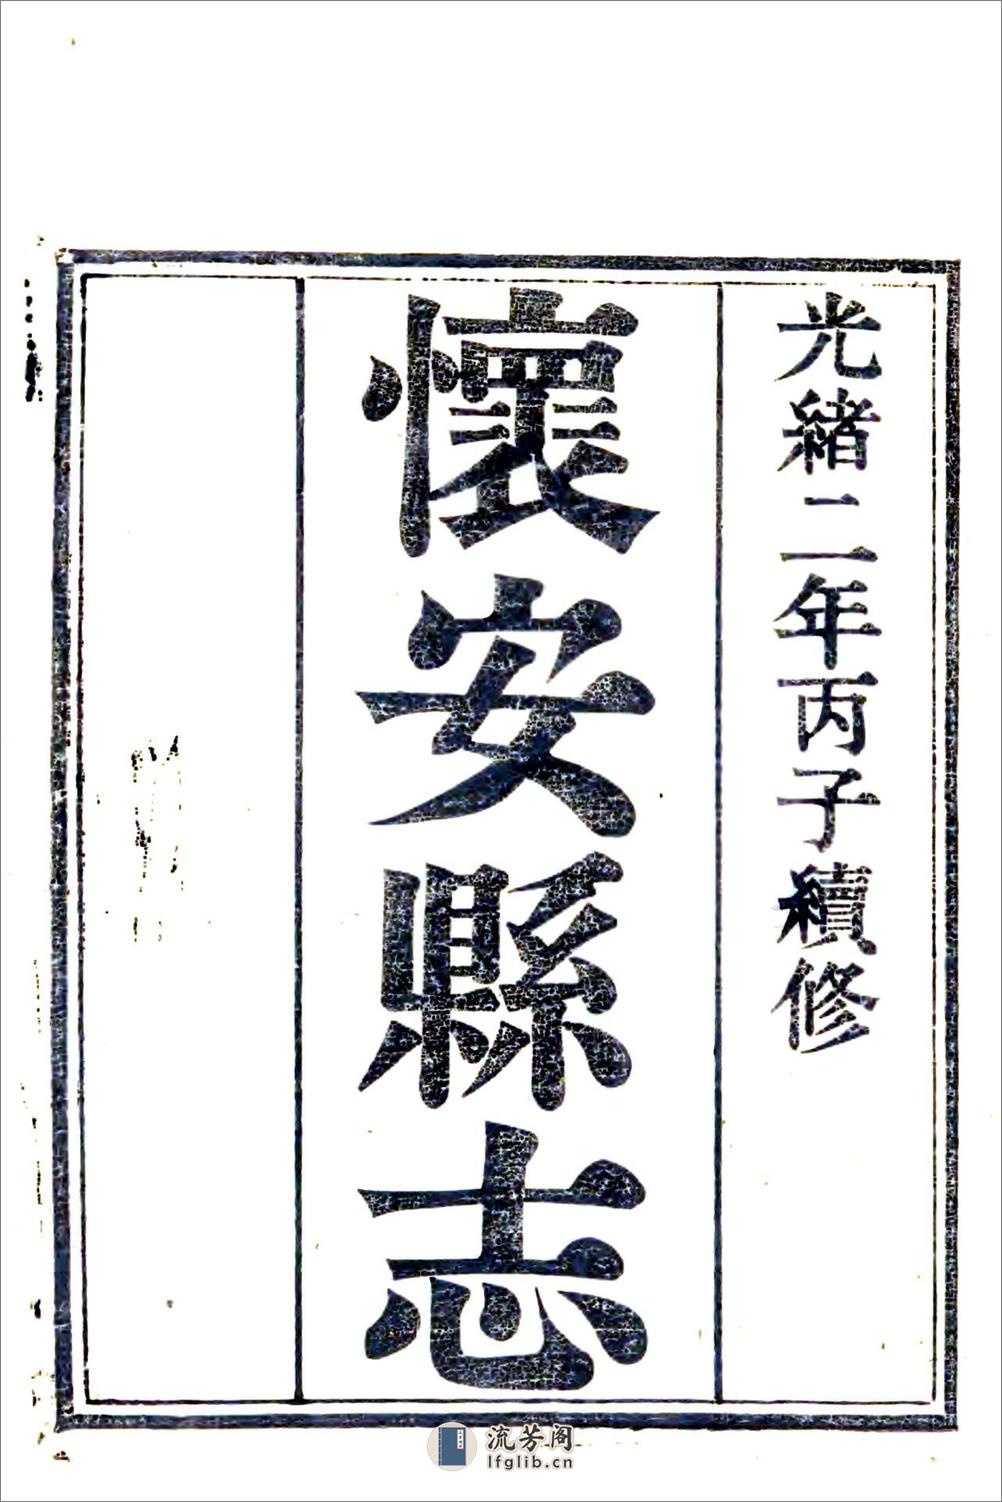 光緒二年丙子續修
懷安縣志
流芳阁
lfglib.cn